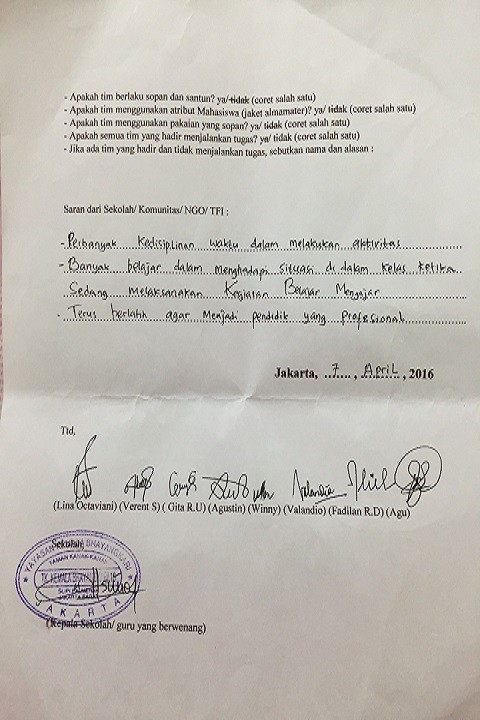 - Apakah tim berlaku sopan dan santun? ya/ tidak (coret salah satu)
- Apakah tim menggunakan atribut Mahasiswa (jaket almamater)? ya/ tidak (coret salah satu)
- Apakah tim menggunakan pakaian yang sopan? ya/ tidak (coret salah satu)
- Apakah semua tim yang hadir menjalankan tugas? ya/ tidak (coret salah satu)
- Jika ada tim yang hadir dan tidak menjalankan tugas, sebutkan nama dan alasan :
Saran dari Sekolah/ Komunitas/ NGO/ TFI :
- Perbanyak Kedisiplinan waktu dalam melakukan aktivitas
- Banyak belajar dalam menghadapi situasi di dalam kelas ketika
Sedang melaksanakan Kegiatan Belajar Mengajar
- Terus berlatih agar Menjadi pendidik yang Profesional
Jakarta, 7, April, 2016
Ttd,
Valandio
(Lina Octaviani) (Verent S) ( Gita R.U) (Agustin) (Winny) (Valandio) (Fadilan R.D) (Agu)
Sekolah,
YAYASAN BHAYANGKARI
TAMAN KANAK-KANAK
TK KEMALA
JAKARTA
(Kepala Sekolah/ guru yang berwenang)